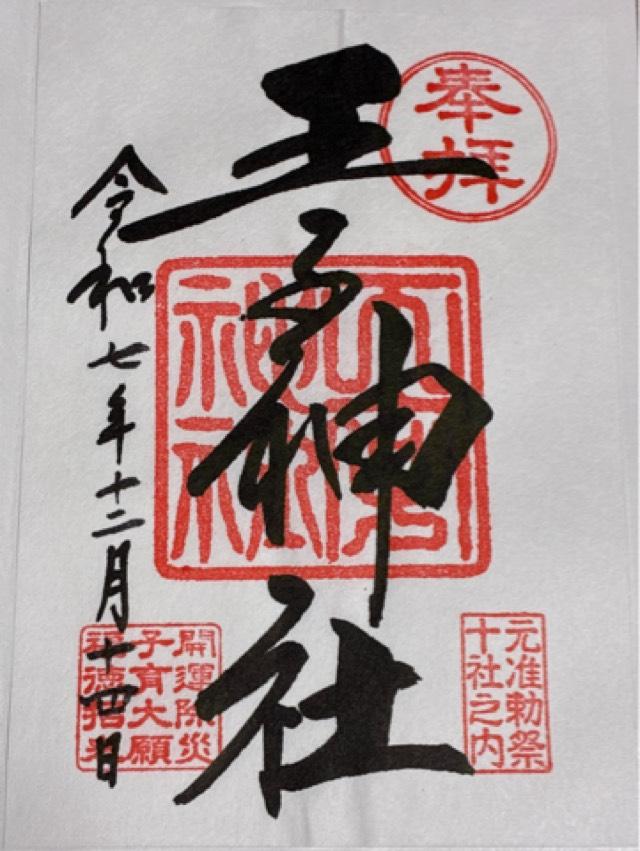 奉拝
王子神社
王子神社
元准勅祭
十社之内
開運除災
子育大願
福徳招来
令和七年十二月十四日